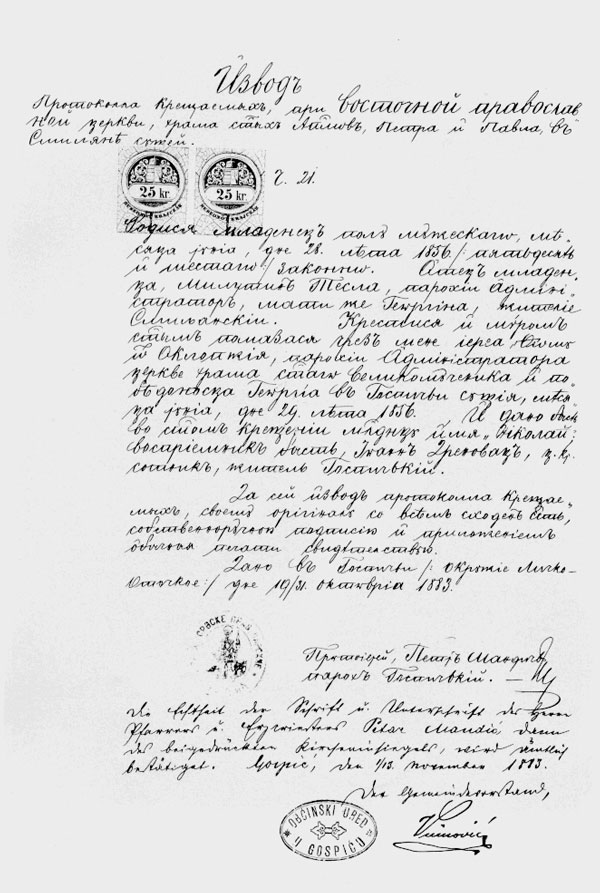 Изводъ
Протоколла крещаемыхъ, при восточной православ
ной церкви, храма стыхъ Аплювъ, Петра и Павла, въ
Смилянѣ сущей.
25 kr. 25 kr. Ч. 21.
Родися младенецъ полѫ мѫжескагѡ, мѣс
сяца јунiа, дне 28. лѣта 1856./: пятьдесятъ
и шестагѡ :/ законно. Отецъ младен
ца, Милутинъ Тесла, парохiи Админi
стратор, мати же Георгина, жителiе
Смилянскiи. Крестися и мѵром
стымъ помазася чрезъ мене iереа
парохiи Адмiнiстратора
церкве храма стагѡ Великомѫченика и по
бѣдоносца Георгiа въ Госпичѣи сущiя, мѣся
ца јунiа, дне 24. лѣта 1856. И дано бысть
во стомъ крещенiи младенцѫ имя „Николай:
воспрiемникъ бысть, Iоаннъ Дреновацъ, ц. кр.
сотникъ, житель Госпичкiй.
За сей изводъ протоколла крещае
мыхъ, своемѫ оригiналѫ со всѣмъ сходенъ быть,
собственорѫчною подписiю и приложенiемъ
обычныя печати свидѣтельствѫю.
Дано въ Госпичѣи /: окрѫжiе Личко-
Оточкое:/ дне 19/31. октоврiа 1883.
СРБСКЕ
Протоiерей, Петръ Мандичъ
парохъ Госпичкiй.
Die Echtheit der Schrift u. Unterschrift des Herrn
Pfarrers u. Erzpriesters Petar Mandić, dann
des beigedrückten Kirchensiegels, wird ämtlich
bestätiget. Gospić, den 1/13. November 1883.
Der Gemeindevorstand,
OBĆINSKI URED
U GOSPIĆU
Vuinović